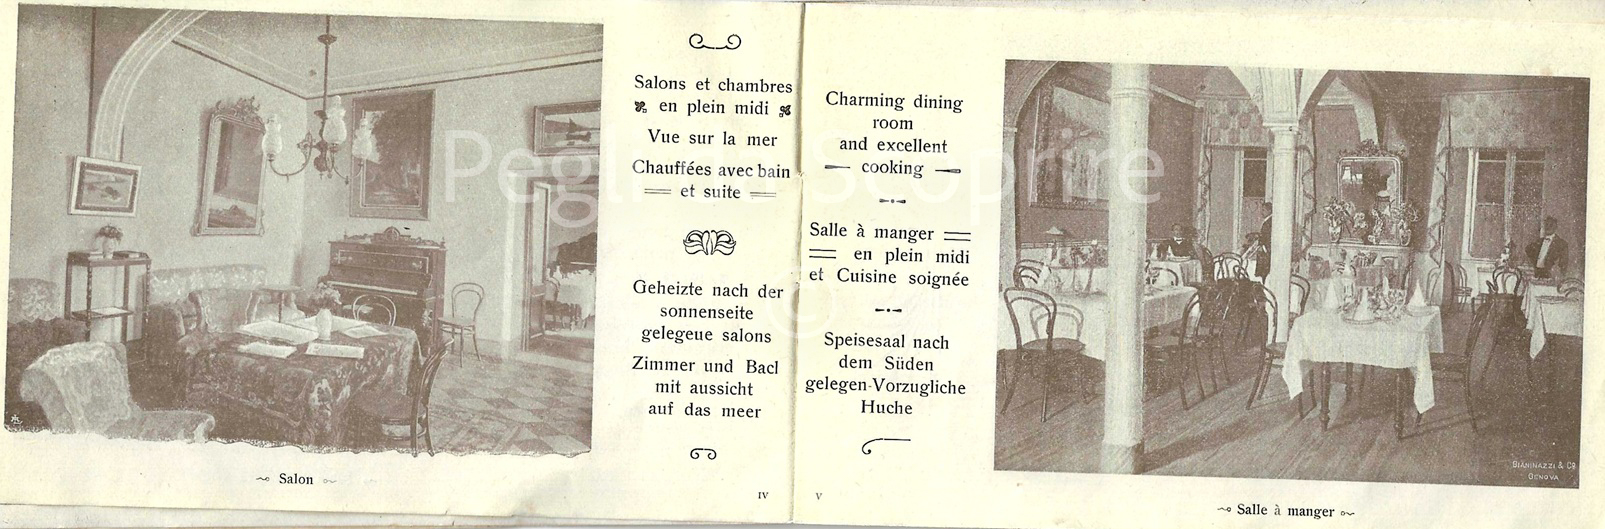 Salons et chambres
en plein midi
Vue sur la mer
Chauffées avec bain
et suite
Geheizte nach der
sonnenseite
gelegeue salons
Zimmer und Bacl
mit aussicht
auf das meer
Salon
IV
Charming dining
room
and excellent
cooking
Salle à manger
en plein midi
et Cuisine soignée
Speisesaal nach
dem Süden
gelegen-Vorzugliche
Huche
V
GIANINAZZI & Co
GENOVA
Salle à manger